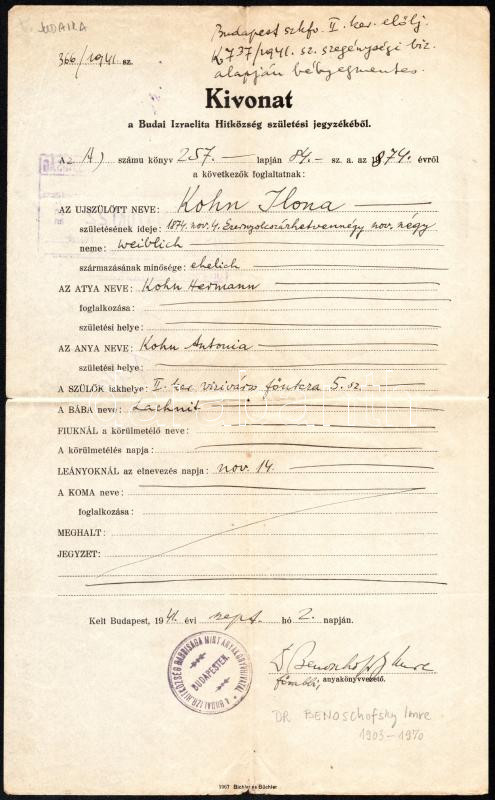 JUDAIKA
Budapest szkfv. II. ker. elölj.
366/1941 sz.
K 737/1941. sz. szegénységi biz.
alapján bélyegmentes.
Kivonat
a Budai Izraelita Hitközség születési jegyzékéből.
Az A) számu könyv 257. lapján 84. sz. a. az 1874. évről
a következők foglaltatnak:
AZ UJSZÜLÖTT NEVE: Kohn Ilona
születésének ideje: 1874. nov. 4. Ezernyolcszázhetvennégy nov. négy
neme: weiblich
származásának minősége: ehelich
AZ ATYA NEVE: Kohn Hermann
foglalkozása:
születési helye:
AZ ANYA NEVE: Kohn Antonia
születési helye:
A SZÜLŐK lakhelye: II. ker viziváros főutcza 5. sz.
A BÁBA neve: Lachnit
FIUKNÁL a körülmetélő neve:
A körülmetélés napja:
LEÁNYOKNÁL az elnevezés napja: nov. 14.
A KOMA neve:
foglalkozása:
MEGHALT:
JEGYZET:
Kelt Budapest, 1941. évi szept. hó 2. napján.
A BUDAI IZR. HITKÖZSÉG RABBISÁGA MINT ANYAKÖNYVI HIVATAL
BUDAPESTEN.
Dr Benoschofsky Imre
főrabbi, anyakönyvvezető.
DR BENOSCHOFSKY Imre
1903-1970
1967 Bichler és Büchler